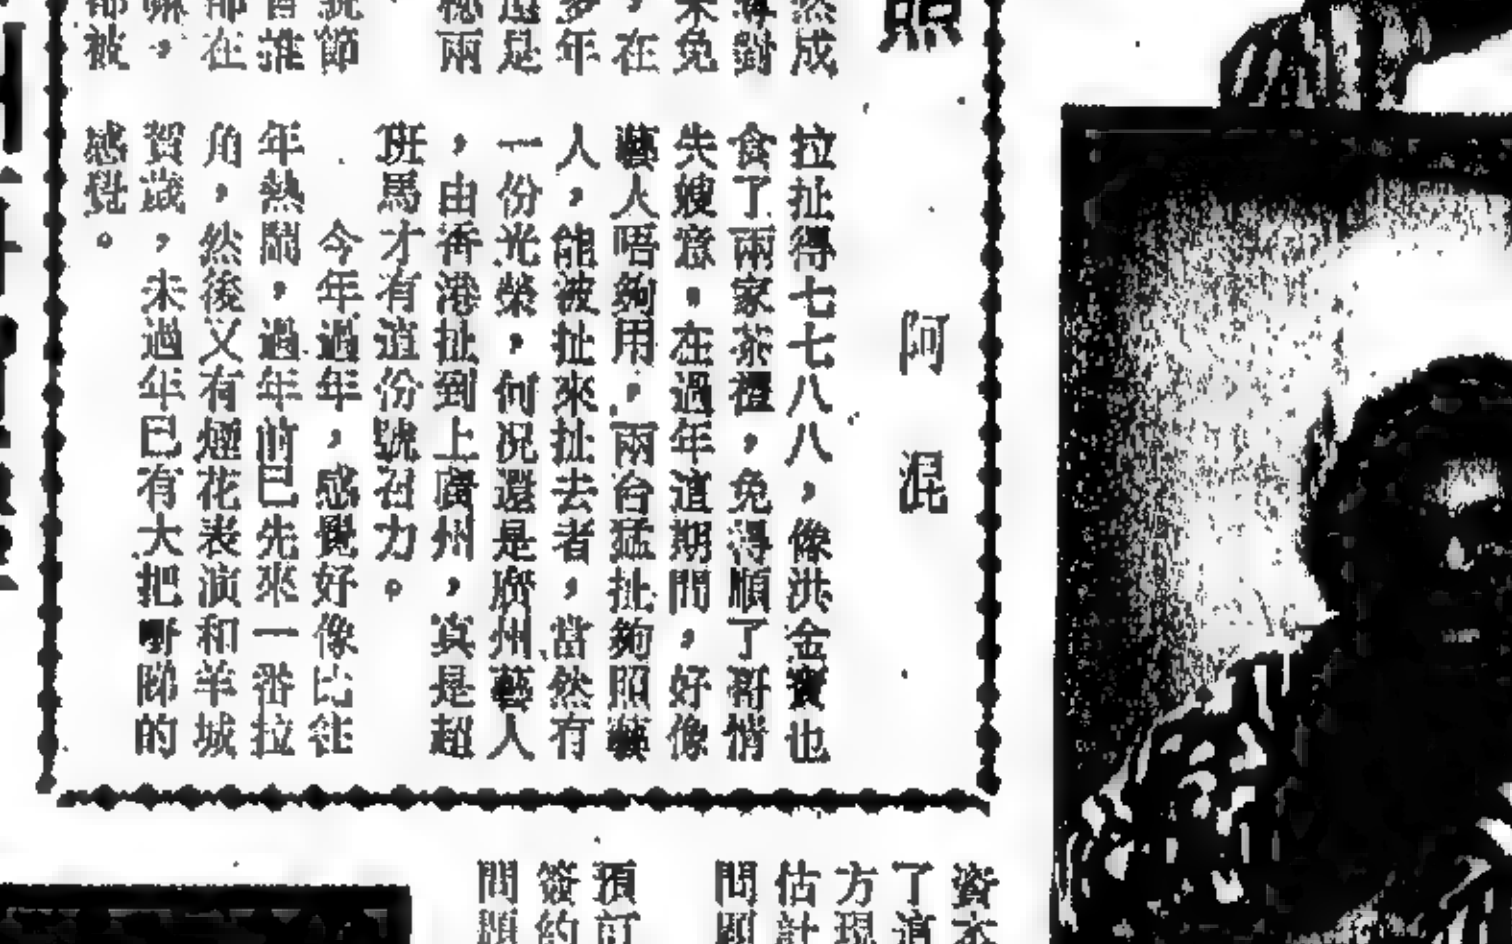 照
阿混
然成
對
未免
，在
多年
還是
兩
說節
誰
都在
嘛，
都被
拉扯得七七八八，像洪金寶也
食了兩家茶禮，免得順了哥情
失嫂意，在過年這期間，好像
藝人唔夠用，兩台猛扯夠照藝
人，能被扯來扯去者，當然有
一份光榮，何况還是廣州藝人
，由香港扯到上廣州，眞是超
班馬才有這份號召力。
今年過年，感覺好像比往
年熱鬧，過年前已先來一番拉
角，然後又有煙花表演和羊城
賀歲，未過年已有大把野睇的
感覺。
資本
了這
方現
估計
問題
預訂
簽約
問題